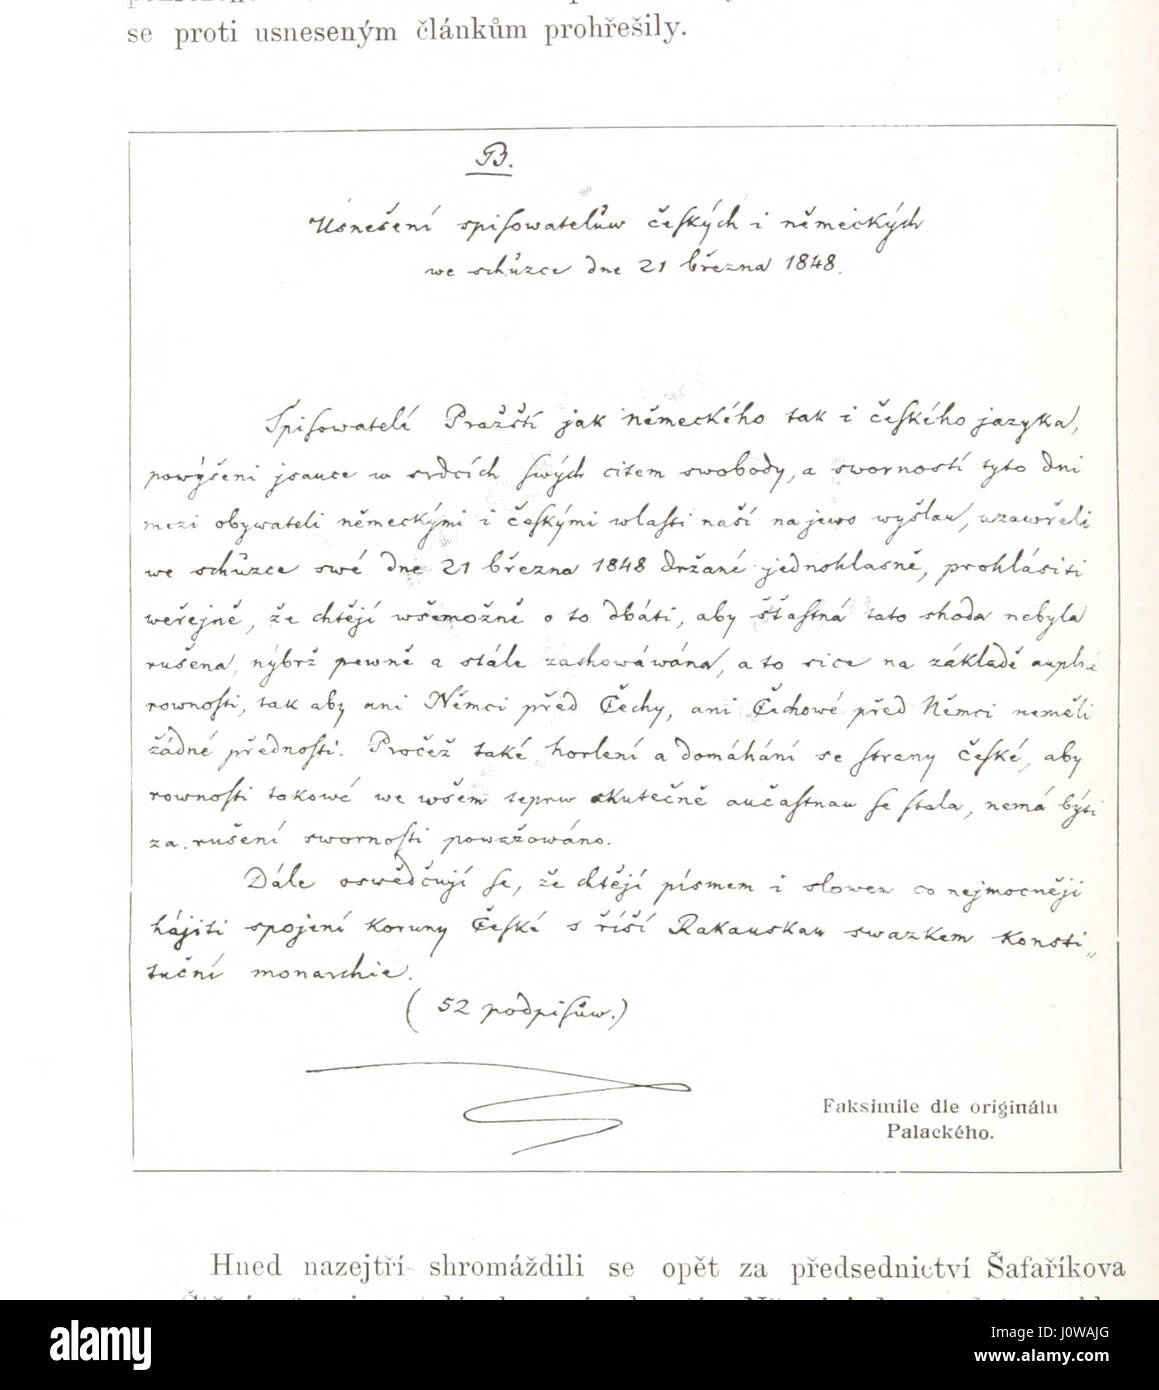 se proti usneseným článkům prohřešily.
B.
Usnešení spisowatelůw českých i německých
we schůzce dne 21 března 1848.
Spisowatelé Pražští jak německého tak i českého jazyka,
powýšeni jsauce w srdcích swých citem swobody, a sworností tyto dni
mezi obywateli německými i českými wlasti naší na jewo wyšlau, uzawřeli
we schůzce swé dne 21 března 1848 držané jednohlasně, prohlásiti
weřejně, že chtějí wšemožně o to dbáti, aby šťastná tato shoda nebyla
rušena, nýbrž pewně a stále zachowáwána, a to sice na základě auplné
rownosti, tak aby ani Němci před Čechy, ani Čechowé před Němci neměli
žádné přednosti. Pročež také horlení a domáhání se strany české, aby
rownosti takowé we wšem teprw skutečně aučastnau se stala, nemá býti
za rušení swornosti powažowáno.
Dále oswědčují se, že chtějí písmem i slowem co nejmocněji
hájiti spojení koruny České s říší Rakauskau swazkem konsti„
tuční monarchie.
(52 podpisůw.)
Faksimile dle originálu
Palackého.
Hned nazejtří shromáždili se opět za předsednictví Šafaříkova
alamy
Image ID: J0WAJG
www.alamy.com